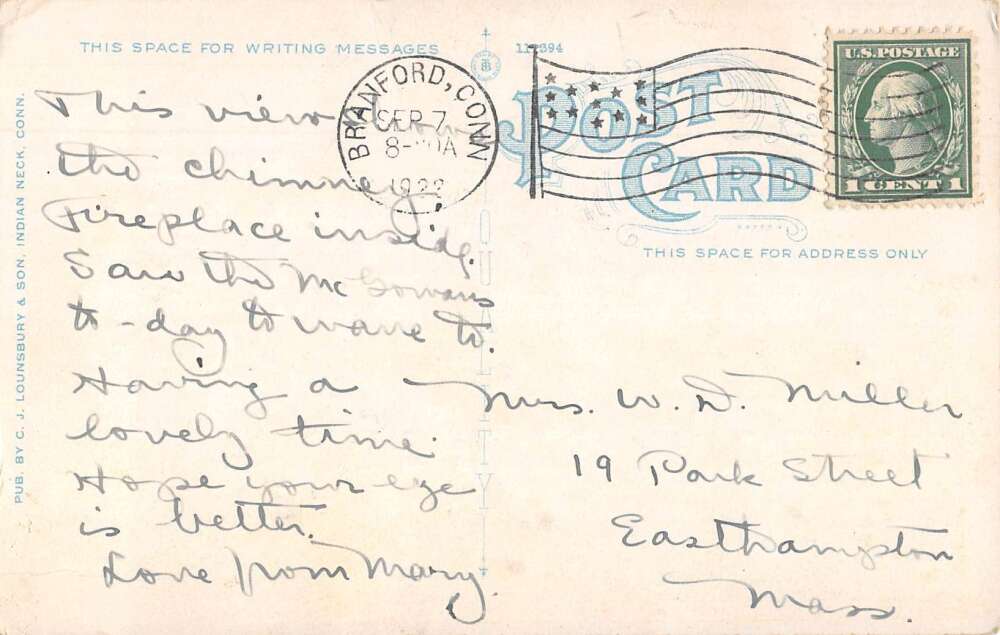 THIS SPACE FOR WRITING MESSAGES
This view
the chimney
Fireplace inside.
Saw the McGowans
to-day to wave to.
Having a
lovely time.
Hope your eye
is better.
Love from Mary
PUB. BY C. J. LOUNSBURY & SON, INDIAN NECK, CONN.
BRANFORD, CONN
SEP 7
POST
CARD
THIS SPACE FOR ADDRESS ONLY
U.S. POSTAGE
1 CENT 1
QUALITY
Mrs. W. D. Miller
19 Park Street
Easthampton
Mass.